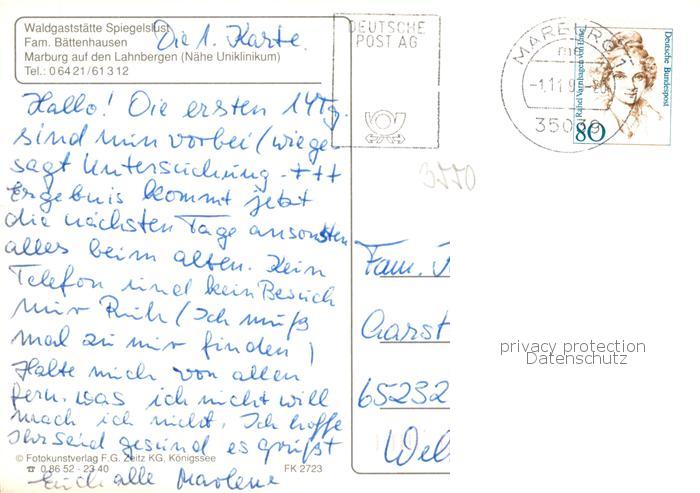 Waldgaststätte Spiegelslust
Fam. Bättenhausen
Marburg auf den Lahnbergen (Nähe Uniklinikum)
Tel.: 0 64 21 / 61 3 12
Die 1. Karte.
Hallo! Die ersten 14 Tg.
sind nun vorbei (wie ge-
sagt Untersuchung - +++
Ergebnis kommt jetzt
die nächsten Tage ansonsten
alles beim alten. Kein
Telefon und kein Besuch
nur Ruh (Ich muß
mal zu mir finden)
Halte mich von allen
fern. was ich nicht will
mach ich nicht. Ich hoffe
Ihr seid gesund es grüßt
Euch alle Marlene
© Fotokunstverlag F.G. Zeitz KG, Königssee
☎ 0 86 52 - 23 40
FK 2723
DEUTSCHE
POST AG
MARBURG 1
-1.11.9
35039
Rahel Varnhagen von Ense
Deutsche Bundespost
80
3550
Fam.
Garst
65232
privacy protection
Datenschutz